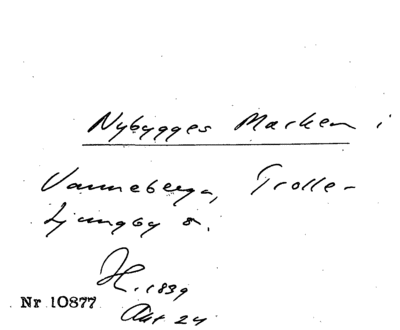 Nybygges Marken i
Vanneberga, Trolle-
Ljungby s.
H. 1839
Akt 24
Nr 10877